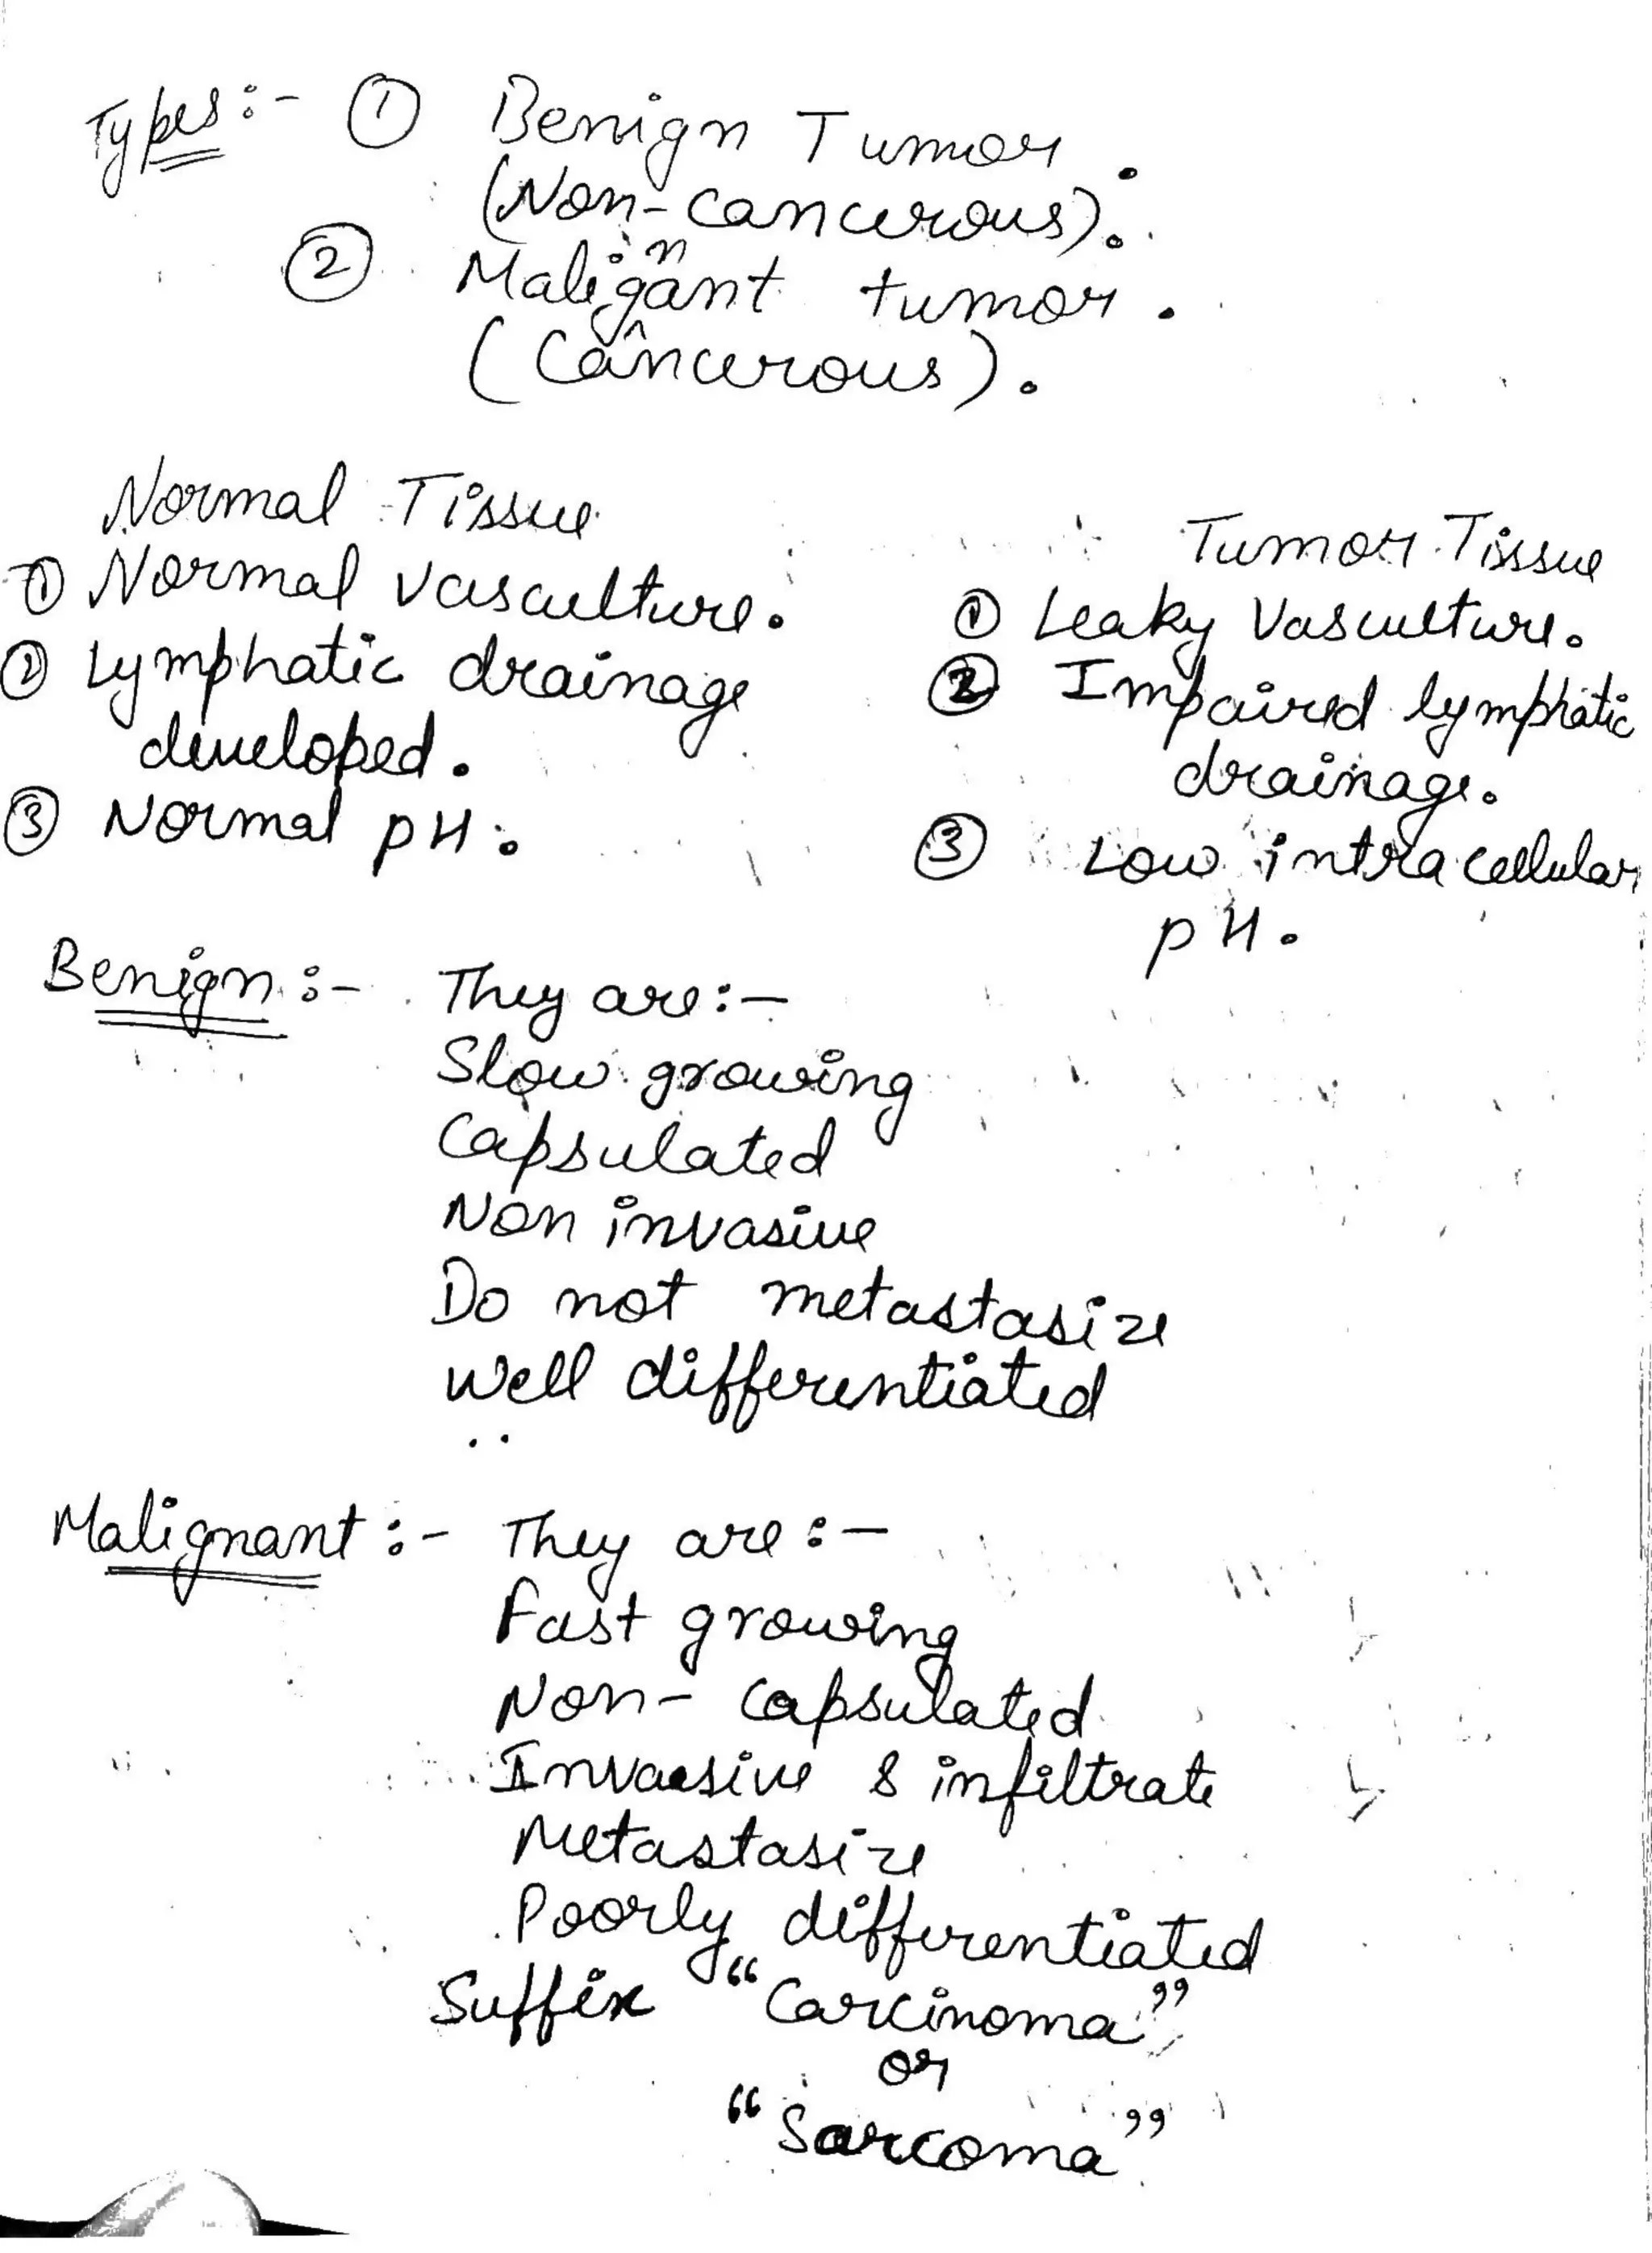 Types:- ① Benign Tumor.
(Non-cancerous).
② Malignant tumor.
(Cancerous).
Normal Tissue
① Normal vasculture.
② Lymphatic drainage
developed.
③ Normal pH.
Tumor Tissue
① Leaky Vasculture.
② Impaired lymphatic
drainage.
③ Low intracellular
pH.
Benign:- They are:-
Slow growing
Capsulated
Non invasive
Do not metastasize
Well differentiated
Malignant:- They are:-
Fast growing
Non-capsulated
Invasive & infiltrate
Metastasize
Poorly differentiated
Suffix "Carcinoma"
or
"Sarcoma"